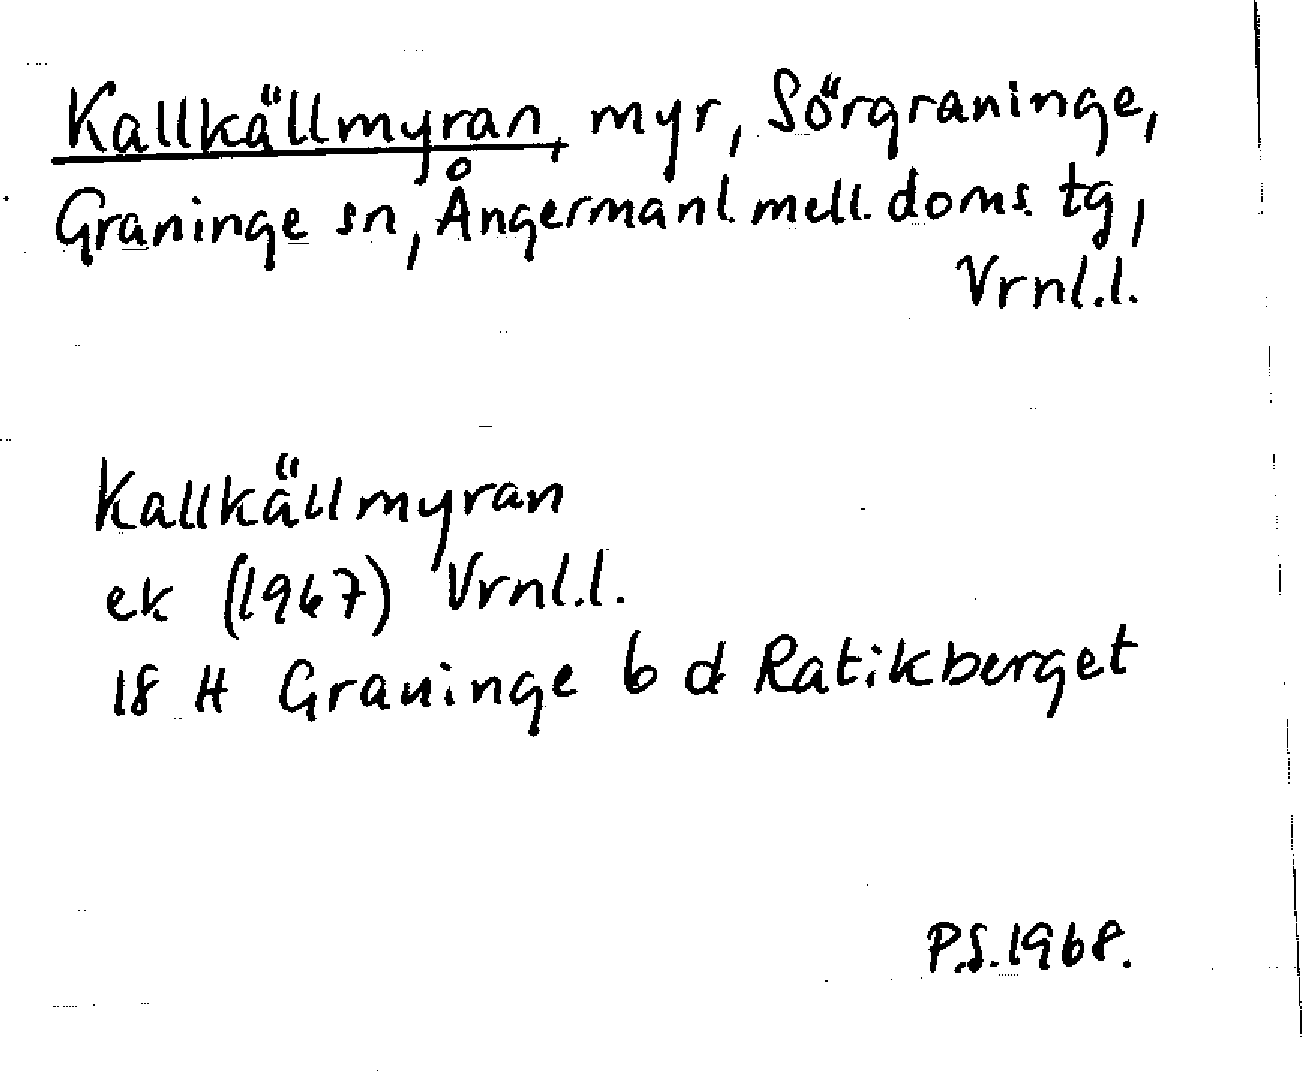 Kallkällmyran, myr, Sörgraninge,
Graninge sn, Ångermanl mell. doms. tg,
Vrnl.l.
Kallkällmyran
ek (1967) Vrnl.l.
18 H Graninge 6 d Ratikberget
P.S. 1968.